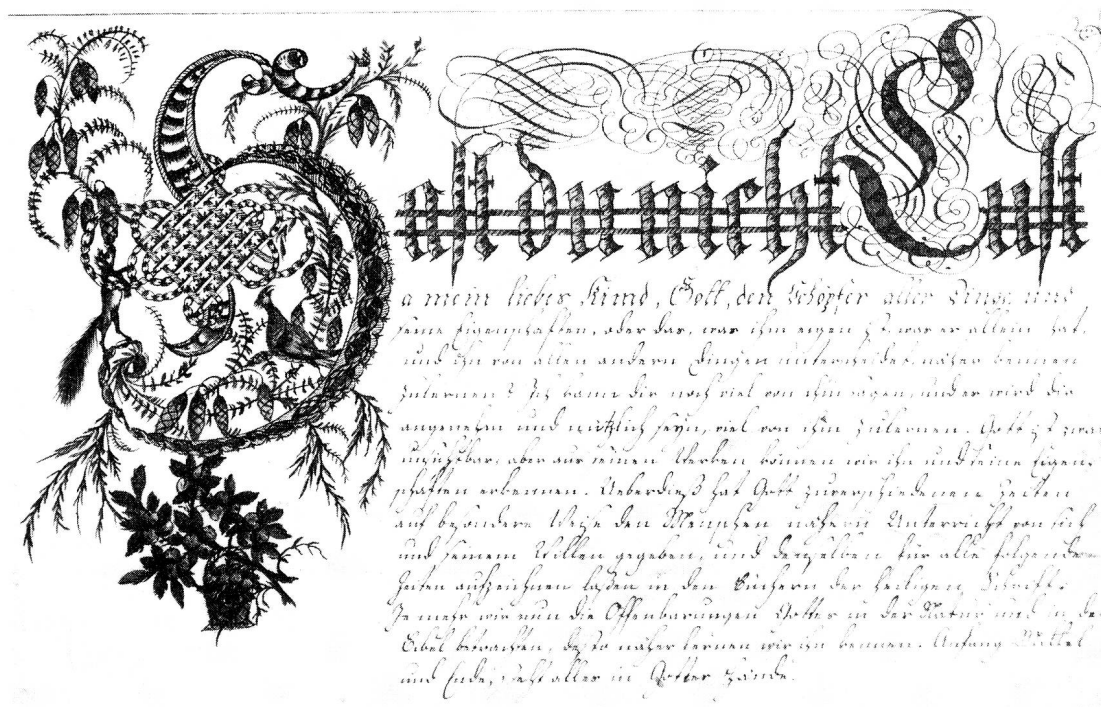 Hast du nicht Lust
a mein liebes Kind, Gott, den Schöpfer aller Dinge und
seine Eigenschaften, oder das, was ihm eigen ist, was er allein hat,
und ihn von allen andern Dingen unterscheidet, näher kennen
zulernen? Ich kann dir noch viel von ihm sagen, und es wird dir
angenehm und nützlich seyn, viel von ihm zulernen. Gott ist zwar
unsichtbar, aber aus seinen Werken können wir ihn und seine Eigen-
schaften erkennen. Ueberdieß hat Gott zuverschiedenen Zeiten
auf besondere Weise den Menschen nähern Unterricht von sich
und seinem Willen gegeben, und denselben für alle folgenden
Zeiten aufzeichnen laßen in den Büchern der heiligen Schrift.
Je mehr wir nun die Offenbarungen Gottes in der Natur und in de
Bibel betrachten, desto näher lernen wir ihn kennen. Anfang Mittel
und Ende, steht alles in Gottes Hände.